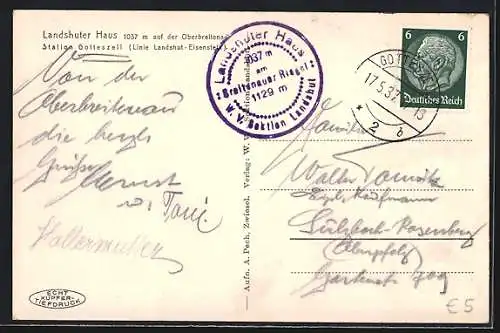 Landshuter Haus 1037 m auf der Oberbreitenau
Station Gotteszell (Linie Landshut-Eisenstein)
Landshuter Haus
1037 m
am
Breitenauer Riegel
1129 m
W. V. Sektion Landshut
6 6
Deutsches Reich
GOTTESZELL
17.5.37
13
2 b
Von der
Oberbreitenau
die herzl.
Grüße
Ernst
u. Toni
Hallermeier
Familie
Walter
Kaufmann
Sulzbach-Rosenberg
(Oberpfalz)
Gartenstr.
Aufn. A. Pech, Zwiesel. Verlag: W. V. Sektion Landshut
ECHT
KUPFER-
TIEFDRUCK
€5